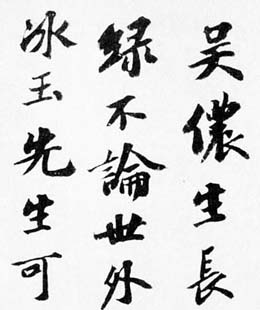 吴儂生長
緑不論世外
冰玉先生可